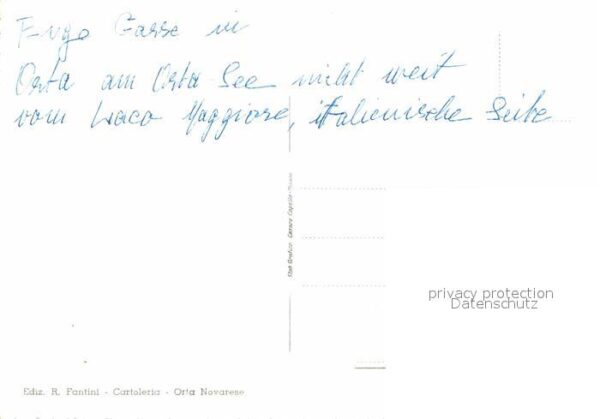 Enge Gasse in
Orta am Orta See nicht weit
vom Laco Maggiore, italienische Seite
privacy protection
Datenschutz
Ediz. R. Fantini - Cartoleria - Orta Novarese